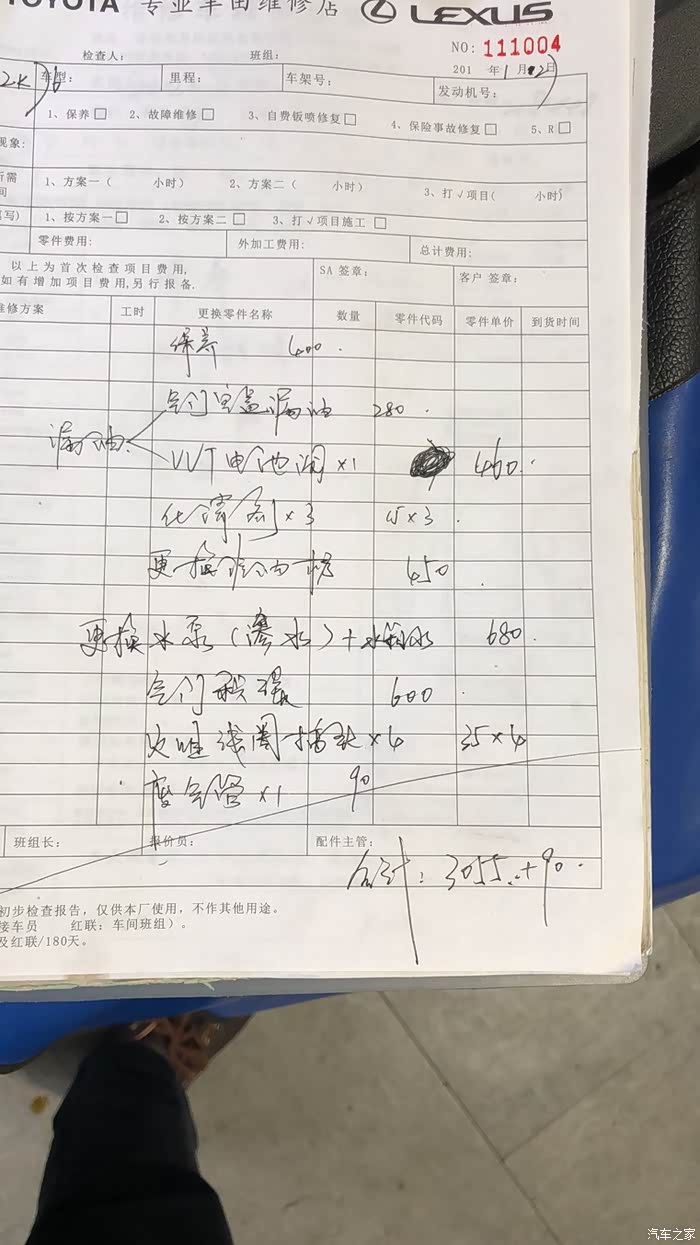 TOYOTA 专业丰田维修店 LEXUS
NO: 111004
检查人: 班组: 201 年1月 2日
2K) 6 车型: 里程: 车架号: 发动机号:
1、保养□ 2、故障维修□ 3、自费钣喷修复□ 4、保险事故修复□ 5、R□
现象:
所需
间 1、方案一( 小时) 2、方案二( 小时) 3、打√项目( 小时)
写) 1、按方案一□ 2、按方案二□ 3、打√项目施工□
零件费用: 外加工费用: 总计费用:
以上为首次检查项目费用,
如有增加项目费用,另行报备. SA 签章: 客户 签章:
维修方案 工时 更换零件名称 数量 零件代码 零件单价 到货时间
保养 400.
气门室盖漏油 280.
漏油
VVT电池阀×1 460.
化清剂×3 45×3.
更换 450
更换水泵(渗水)+水 680.
气门 600.
火咀线圈插头×4 35×4
废气管×1 90
班组长: 报价员: 配件主管:
合计: 3055.+90.
初步检查报告，仅供本厂使用，不作其他用途。
接车员 红联: 车间班组)。
及红联/180天。
汽车之家